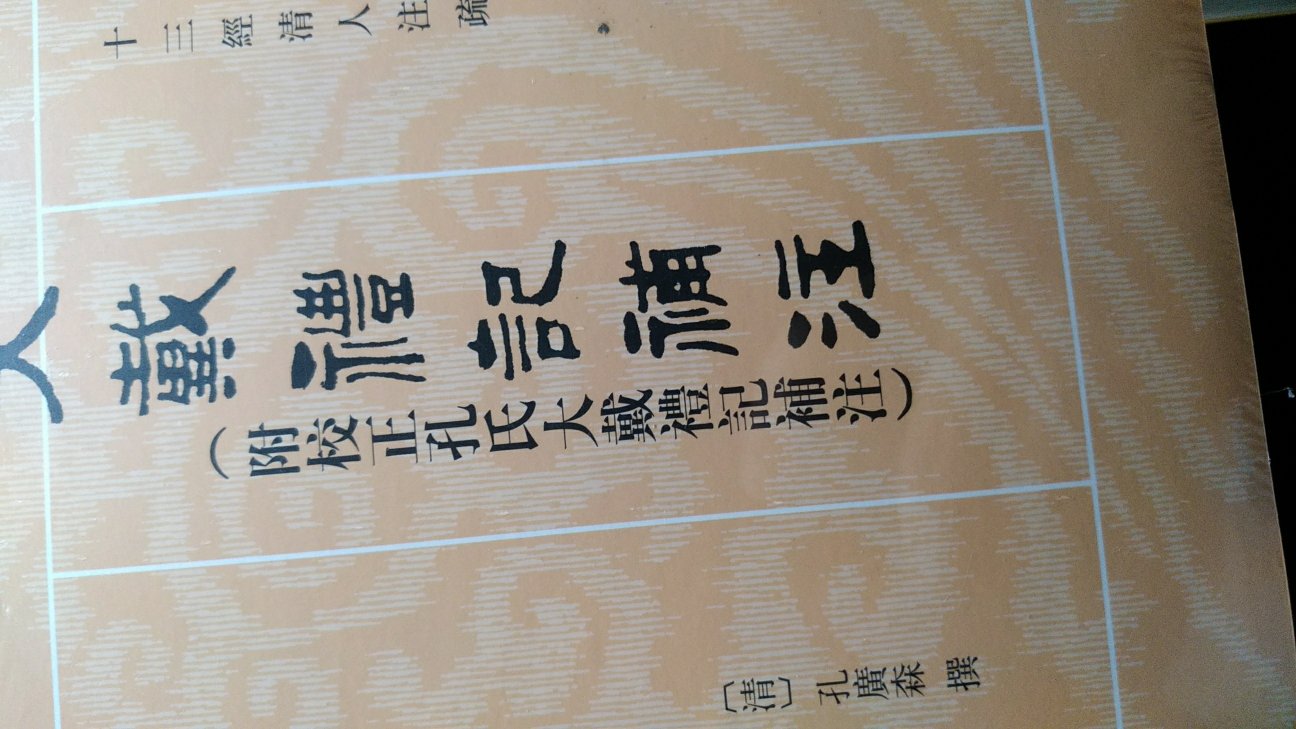 十三經清人注疏
大戴禮記補注
（附校正孔氏大戴禮記補注）
〔清〕孔廣森 撰